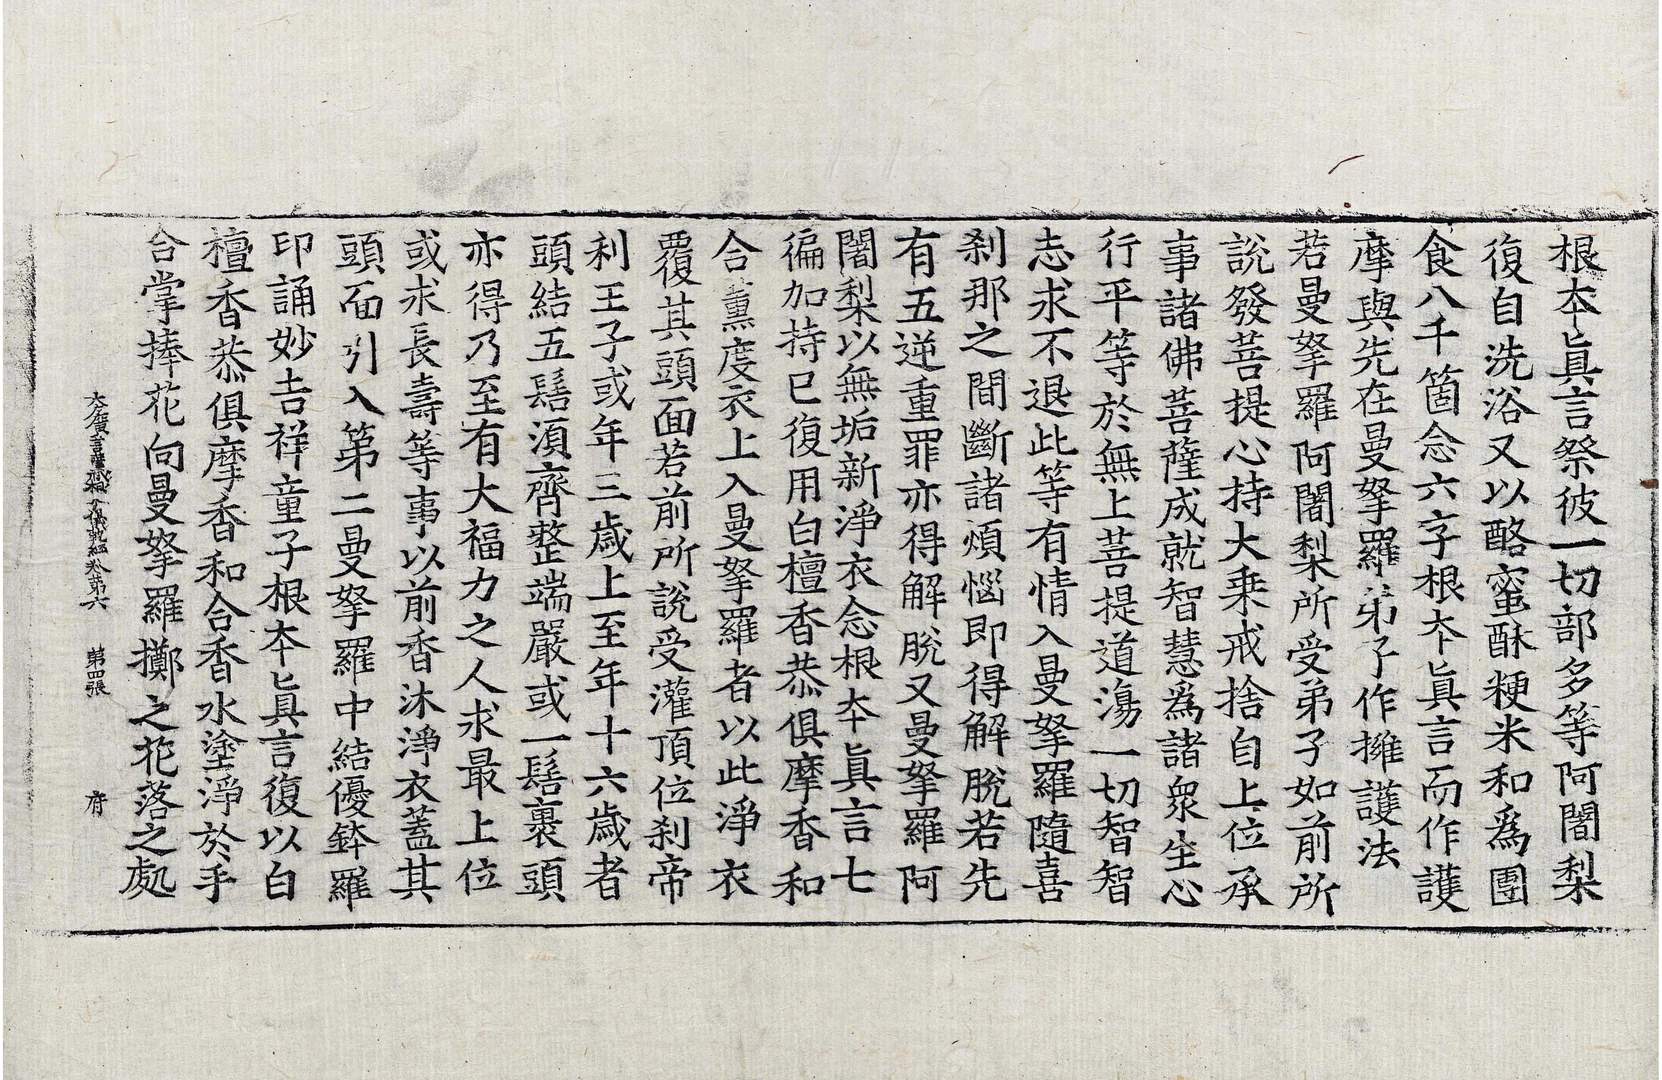 根本眞言祭彼一切部多等阿闍梨
復自洗浴又以酪蜜酥粳米和爲團
食八千箇念六字根本眞言而作護
摩與先在曼拏羅弟子作擁護法
若曼拏羅阿闍梨所受弟子如前所
說發菩提心持大乗戒捨自上位承
事諸佛菩薩成就智慧爲諸衆生心
行平等於無上菩提道湯一切智智
志求不退此等有情入曼拏羅隨喜
刹那之間斷諸煩惱即得解脫若先
有五逆重罪亦得解脫又曼拏羅阿
闍梨以無垢新淨衣念根本眞言七
徧加持已復用白檀香恭俱摩香和
合薰度衣上入曼拏羅者以此淨衣
覆其頭面若前所說受灌頂位刹帝
利王子或年三歲上至年十六歲者
頭結五髻須齊整端嚴或一髻裹頭
亦得乃至有大福力之人求最上位
或求長壽等事以前香沐淨衣蓋其
頭面引入第二曼拏羅中結優鉢羅
印誦妙吉祥童子根本眞言復以白
檀香恭俱摩香和合香水塗淨於手
合掌捧花向曼拏羅擲之花落之處
大廣菩薩藏經卷第六 第四張 府